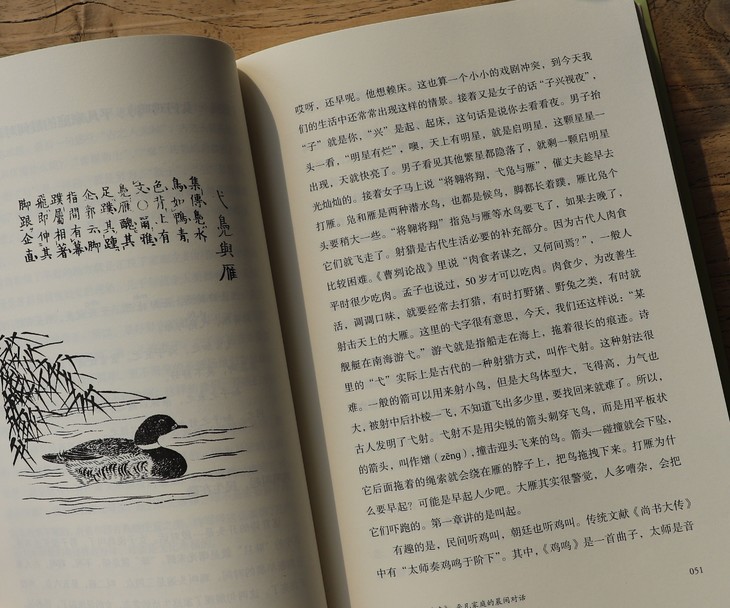 弋鳧與雁
集傳鳧水
鳥如鴨青
色背上有
文〇爾雅
鳧雁醜其
足蹼其踵
企郭云脚
指間有幕
蹼屬相著
飛即伸其
脚跟企直
哎呀，还早呢。他想赖床。这也算一个小小的戏剧冲突，到今天我
们的生活中还常常出现这样的情景。接着又是女子的话“子兴视夜”，
“子”就是你，“兴”是起、起床，这句话是说你去看看夜。男子抬
头一看，“明星有烂”，噢，天上有明星，就是启明星，这颗星星一
出现，天就快亮了。男子看见其他繁星都隐落了，就剩一颗启明星
光灿灿的。接着女子马上说“将翱将翔，弋凫与雁”，催丈夫趁早去
打雁。凫和雁是两种潜水鸟，也都是候鸟，脚都长着蹼，雁比凫个
头要稍大一些。“将翱将翔”指凫与雁等水鸟要飞了，如果去晚了，
它们就飞走了。射猎是古代生活必要的补充部分。因为古代人肉食
比较困难。《曹刿论战》里说“肉食者谋之，又何间焉?”，一般人
平时很少吃肉。孟子也说过，50岁才可以吃肉。肉食少，为改善生
活，调调口味，就要经常去打猎，有时打野猪、野兔之类，有时就
射击天上的大雁。这里的弋字很有意思，今天，我们还这样说：“某
舰艇在南海游弋。”游弋就是指船走在海上，拖着很长的痕迹。诗
里的“弋”实际上是古代的一种射猎方式，叫作弋射。这种射法很
难。一般的箭可以用来射小鸟，但是大鸟体型大，飞得高，力气也
大，被射中后扑棱一飞，不知道飞出多少里，要找回来就难了。所以，
古人发明了弋射。弋射不是用尖锐的箭头刺穿飞鸟，而是用平板状
的箭头，叫作矰（zēng），撞击迎头飞来的鸟。箭头一碰撞就会下坠，
它后面拖着的绳索就会绕在雁的脖子上，把鸟拖拽下来。打雁为什
么要早起？可能是早起人少吧。大雁其实很警觉，人多嘈杂，会把
它们吓跑的。第一章讲的是叫起。
有趣的是，民间听鸡叫，朝廷也听鸡叫。传统文献《尚书大传》
中有“太师奏鸡鸣于阶下”。其中，《鸡鸣》是一首曲子，太师是音
平凡家庭的晨间对话
051